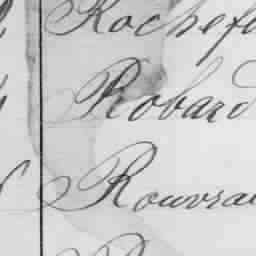 Rochefo
Robard
Rouvrai